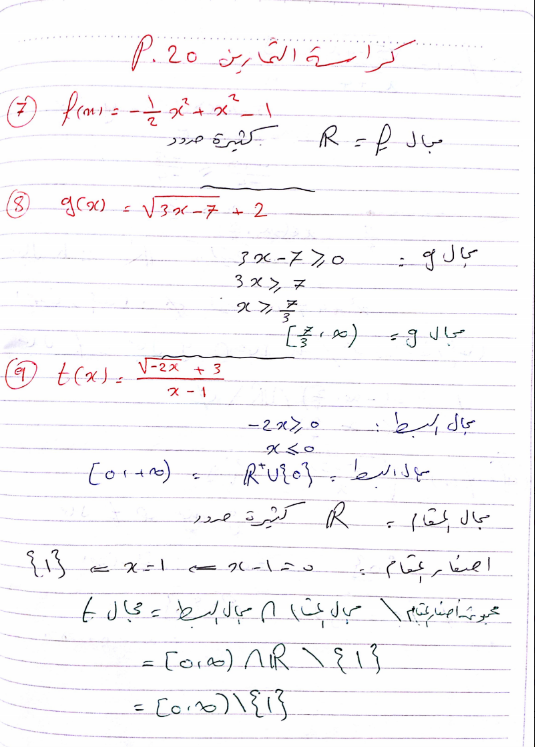 كراسة التمارين P.20
⑦ f(x) = -½ x² + x² - 1
مجال f = ℝ كثيرة حدود
⑧ g(x) = √(3x-7) + 2
مجال g = 3x - 7 ⩾ 0
3x ⩾ 7
x ⩾ 7/3
مجال g = [7/3 , ∞)
⑨ t(x) = (√(-2x) + 3)/(x - 1)
مجال البسط : -2x ⩾ 0
x ⩽ 0
مجال البسط = ℝ⁺∪{0} = [0,+∞)
مجال المقام = ℝ كثيرة حدود
اصفار المقام = x-1=0 ⇐ x=1 ⇐ {1}
مجال t = مجال البسط ∩ مجال المقام \ مجموعة أصفار المقام
= [0,∞) ∩ ℝ \ {1}
= [0,∞) \ {1}